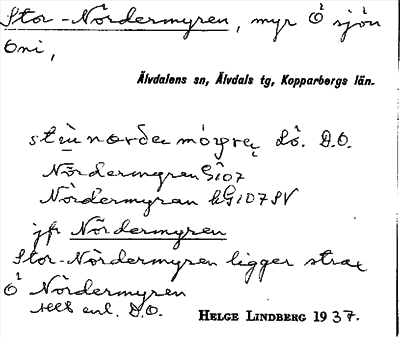 Stor-Nördermyren, myr Ö sjön
Oni,
Älvdalens sn, Älvdals tg, Kopparbergs län.
Lö. D.O.
Nördermyren Gi07
Nördermyran kG107SV
jfr Nördermyren
Stor-Nördermyren ligger strax
Ö Nördermyren
enl. D.O.
HELGE LINDBERG 1937.